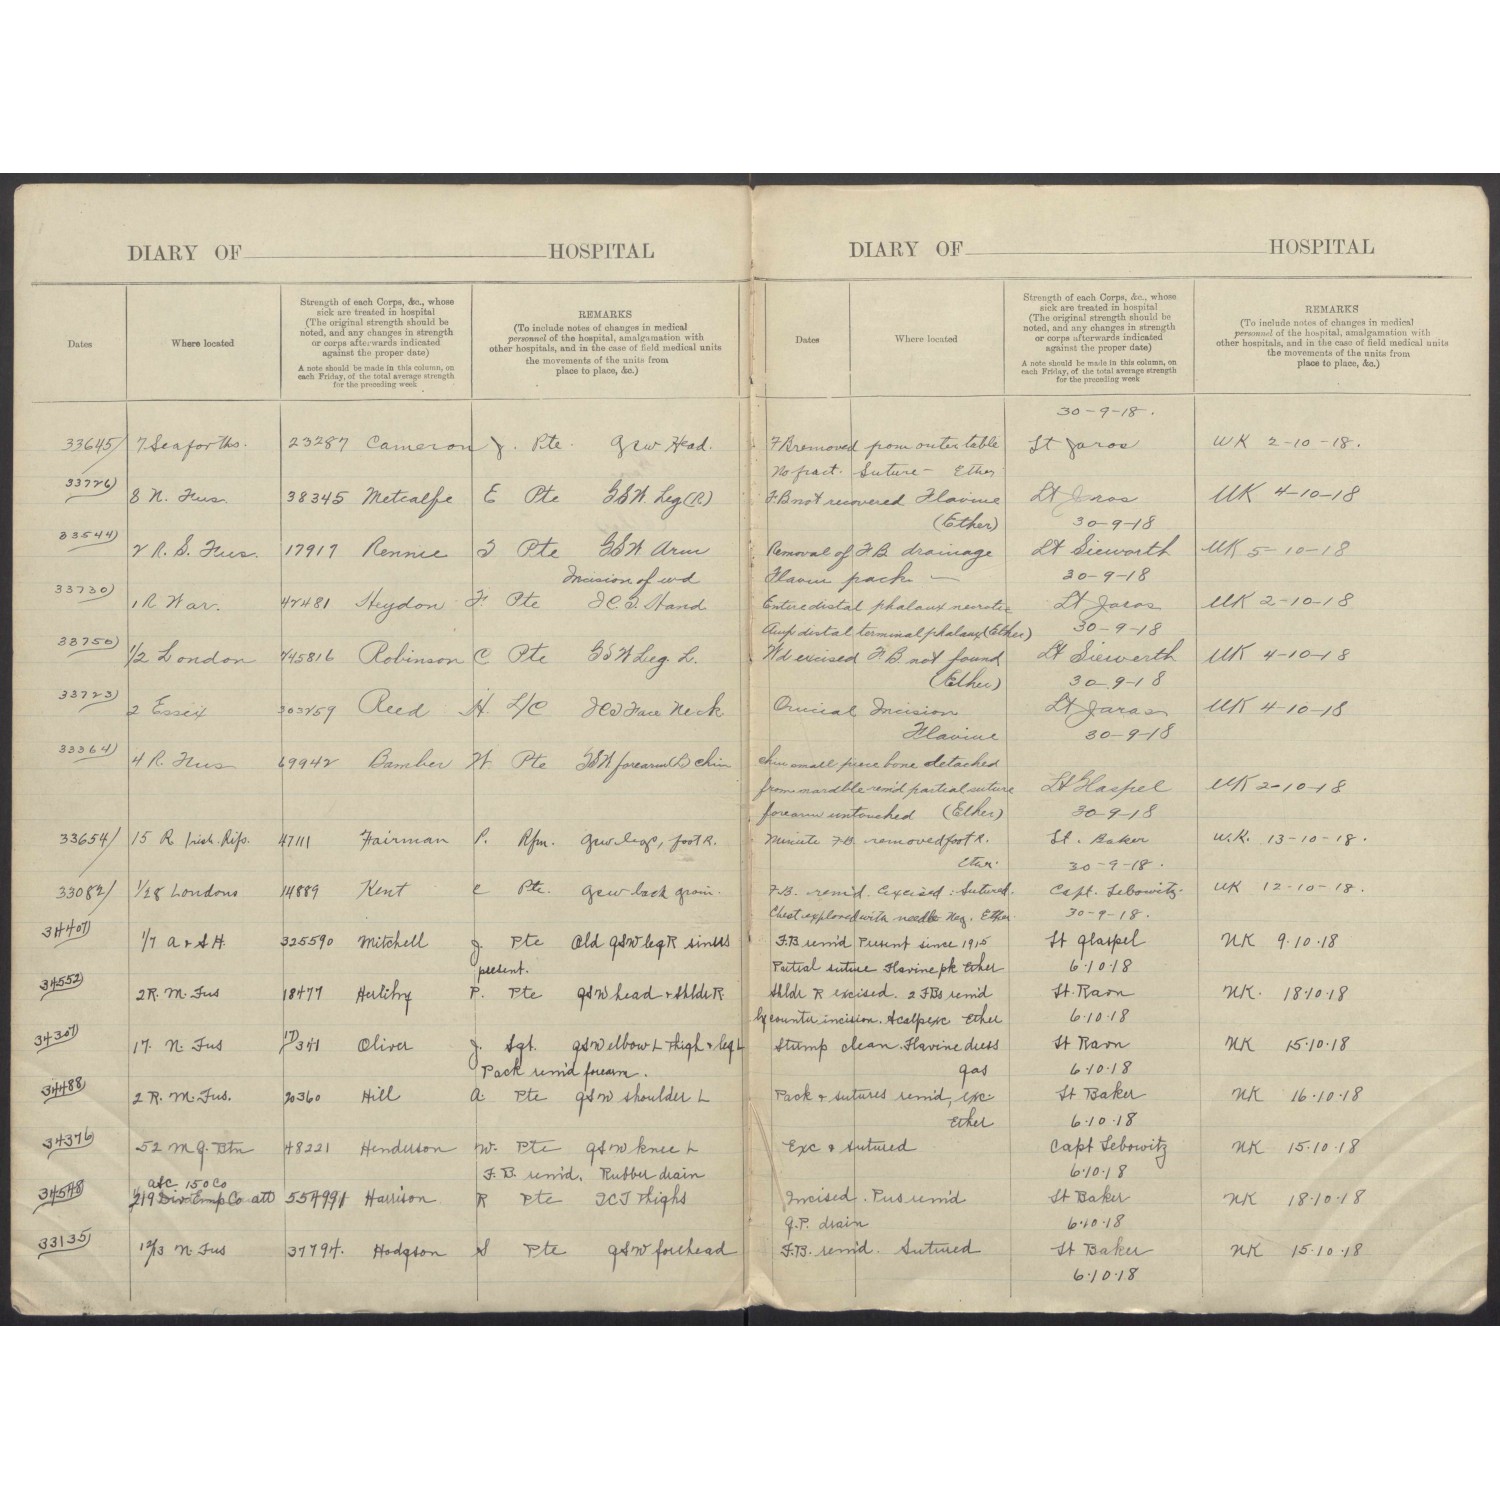 DIARY OF HOSPITAL DIARY OF HOSPITAL
Dates
Where located
Strength of each Corps, &c., whose
sick are treated in hospital
(The original strength should be
noted, and any changes in strength
or corps afterwards indicated
against the proper date)
A note should be made in this column, on
each Friday, of the total average strength
for the preceding week
REMARKS
(To include notes of changes in medical
personnel of the hospital, amalgamation with
other hospitals, and in the case of field medical units
the movements of the units from
place to place, &c.)
Dates
Where located
Strength of each Corps, &c., whose
sick are treated in hospital
(The original strength should be
noted, and any changes in strength
or corps afterwards indicated
against the proper date)
A note should be made in this column, on
each Friday, of the total average strength
for the preceding week
REMARKS
(To include notes of changes in medical
personnel of the hospital, amalgamation with
other hospitals, and in the case of field medical units
the movements of the units from
place to place, &c.)
30-9-18.
33645/ 7 Seaforths. 23287 Cameron J. Pte. GSW Head. F.B removed from outer table Lt Jaros UK 2-10-18.
No fract. Suture - Ether
33726) 8 N. Fus. 38345 Metcalfe E Pte GSW Leg (R) F.B not recovered Flavine Lt Jaros UK 4-10-18
(Ether) 30-9-18
33544) 2 R. S. Fus. 17917 Rennie Pte GSW Arm Removal of F B drainage Lt Sieworth UK 5-10-18
Incision of wd Flavin pack — 30-9-18
33730) 1 R War. 42481 Heydon F. Pte ICT Hand Entire distal phalaux necrotic Lt Jaros UK 2-10-18
Amp distal terminal phalaux (Ether) 30-9-18
33750) 1/2 London 745816 Robinson C Pte GSW Leg L. Wd excised F B not found Lt Sieworth UK 4-10-18
(Ether) 30-9-18
33723) 2 Essex 303259 Reed H. L/C ICT Face Neck Crucial Incision Lt Jaros UK 4-10-18
Flavine 30-9-18
33364) 4 R. Fus 69942 Bamber W. Pte GSW forearm (L) Chin Chin small piece bone detached
from mandble rem'd partial suture Lt Glaspel UK 2-10-18
forearm untouched (Ether) 30-9-18
33654/ 15 R Irish Rifs. 47111 Fairman P. Rfm. GSW legs, foot R. Minute F.B. removed foot R. Lt. Baker U.K. 13-10-18.
Ether 30-9-18.
33082/ 1/28 Londons 14889 Kent C Pte. GSW back groin. F.B. rem'd. Excised. Sutured. Capt. Lebowitz UK 12-10-18.
Chest explored with needle Neg. Ether 30-9-18.
34407) 1/7 A & S H. 325590 Mitchell J Pte Old GSW leg R sinus F.B rem'd Present since 1915 Lt Glaspel UK 9.10.18
present. Partial suture Flavine pk Ether 6.10.18
34552 2 R. M. Fus 18477 Herlihy P. Pte GSW head & Shldr R. Shldr R excised. 2 F.Bs rem'd Lt. Raon UK. 18.10.18
by counter incision. Scalp exc Ether 6.10.18
34307) 17. N. Fus 17/341 Oliver J. Sgt. GSW elbow L Thigh & leg L Stump clean. Flavine dress Lt Raon UK 15.10.18
Pack rem'd forearm. gas 6.10.18
34488 2 R. M. Fus. 20360 Hill A. Pte GSW shoulder L Pack & sutures rem'd, exc. Lt Baker UK 16.10.18
Ether 6.10.18
34376 52 M G. Btn 48221 Henderson W. Pte GSW knee L Exc & sutured Capt Lebowitz UK 15.10.18
F.B. rem'd. Rubber drain 6.10.18
ASC 150 Co
34548 219 Div Emp Co att 554991 Harrison R Pte ICT Thighs Incised. Pus rem'd Lt Baker UK 18.10.18
G.P. drain 6.10.18
33135) 12/13 N. Fus 37794. Hodgson S Pte GSW forehead F.B. rem'd. Sutured Lt Baker UK 15.10.18
6.10.18